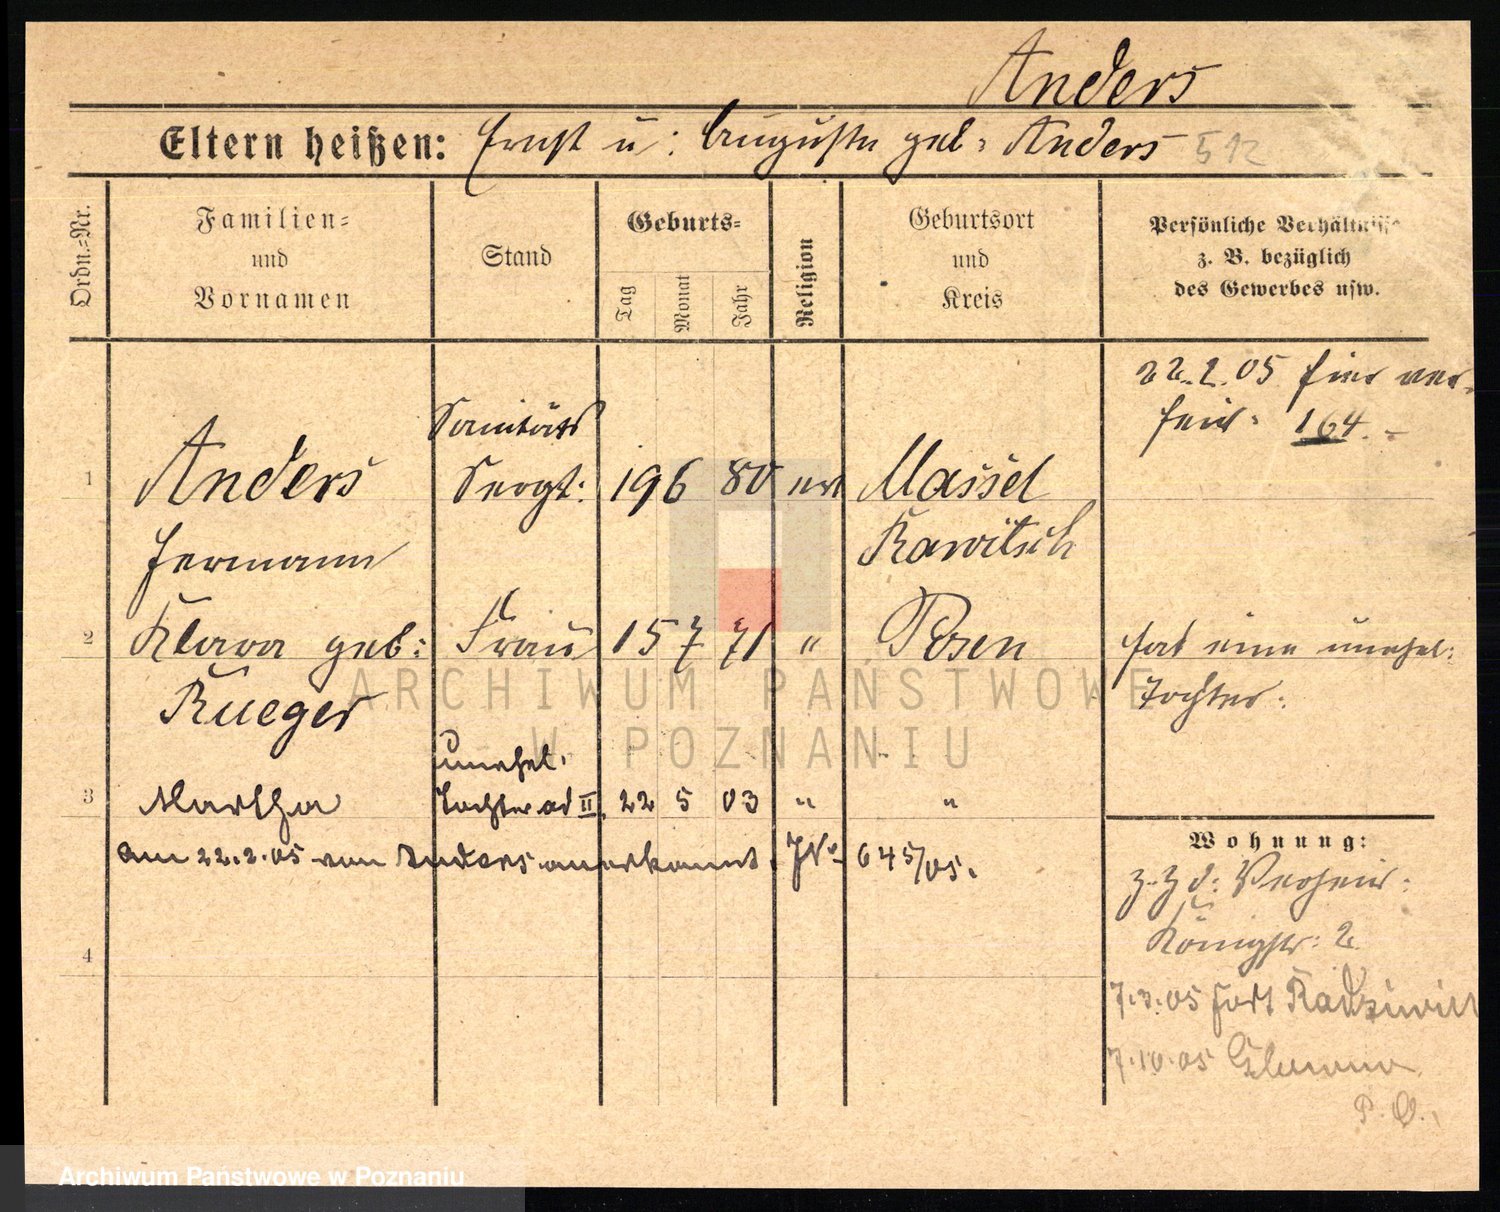 Anders
Eltern heißen: Ernst u: Auguste geb: Anders 512
Ordn.=Nr.
Familien=
und
Vornamen
Stand
Geburts=
Tag
Monat
Jahr
Religion
Geburtsort
und
Kreis
Persönliche Verhältnisse
z. B. bezüglich
des Gewerbes usw.
22.2.05 hier ver-
heir: 164.-
1
Anders
Hermann
Sanitäts
Sergt:
19 6 80
ev
Massel
Rawitsch
2
Klara geb:
Rueger
Frau
15 7 71
"
Posen
hat eine unehel:
Tochter:
3
Martha
unehel.
Tochter ad II.
22 5 03
"
"
am 22.2.05 von Anders anerkannt. JN: 645/05.
4
Wohnung:
z. Zd: Verheir:
Königstr: 2
7.3.05 Fort Radziwill
7.10.05
P. O.
ARCHIWUM PAŃSTWOWE
W POZNANIU
Archiwum Państwowe w Poznaniu